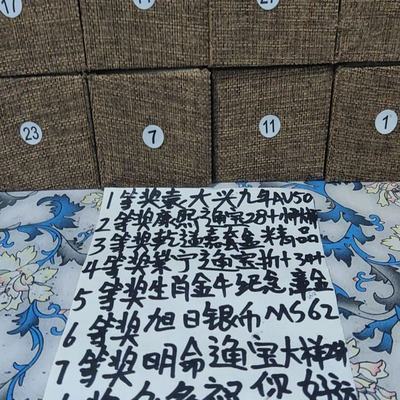 17
27
23
7
11
1
1等奖袁大头九年AU50
2等奖康熙通宝28+
3等奖乾隆嘉套盒精品
4等奖崇宁通宝折十3
5等奖生肖金牛纪念章金
6等奖旭日银币MS62
7等奖明命通宝大样
奖 你好运